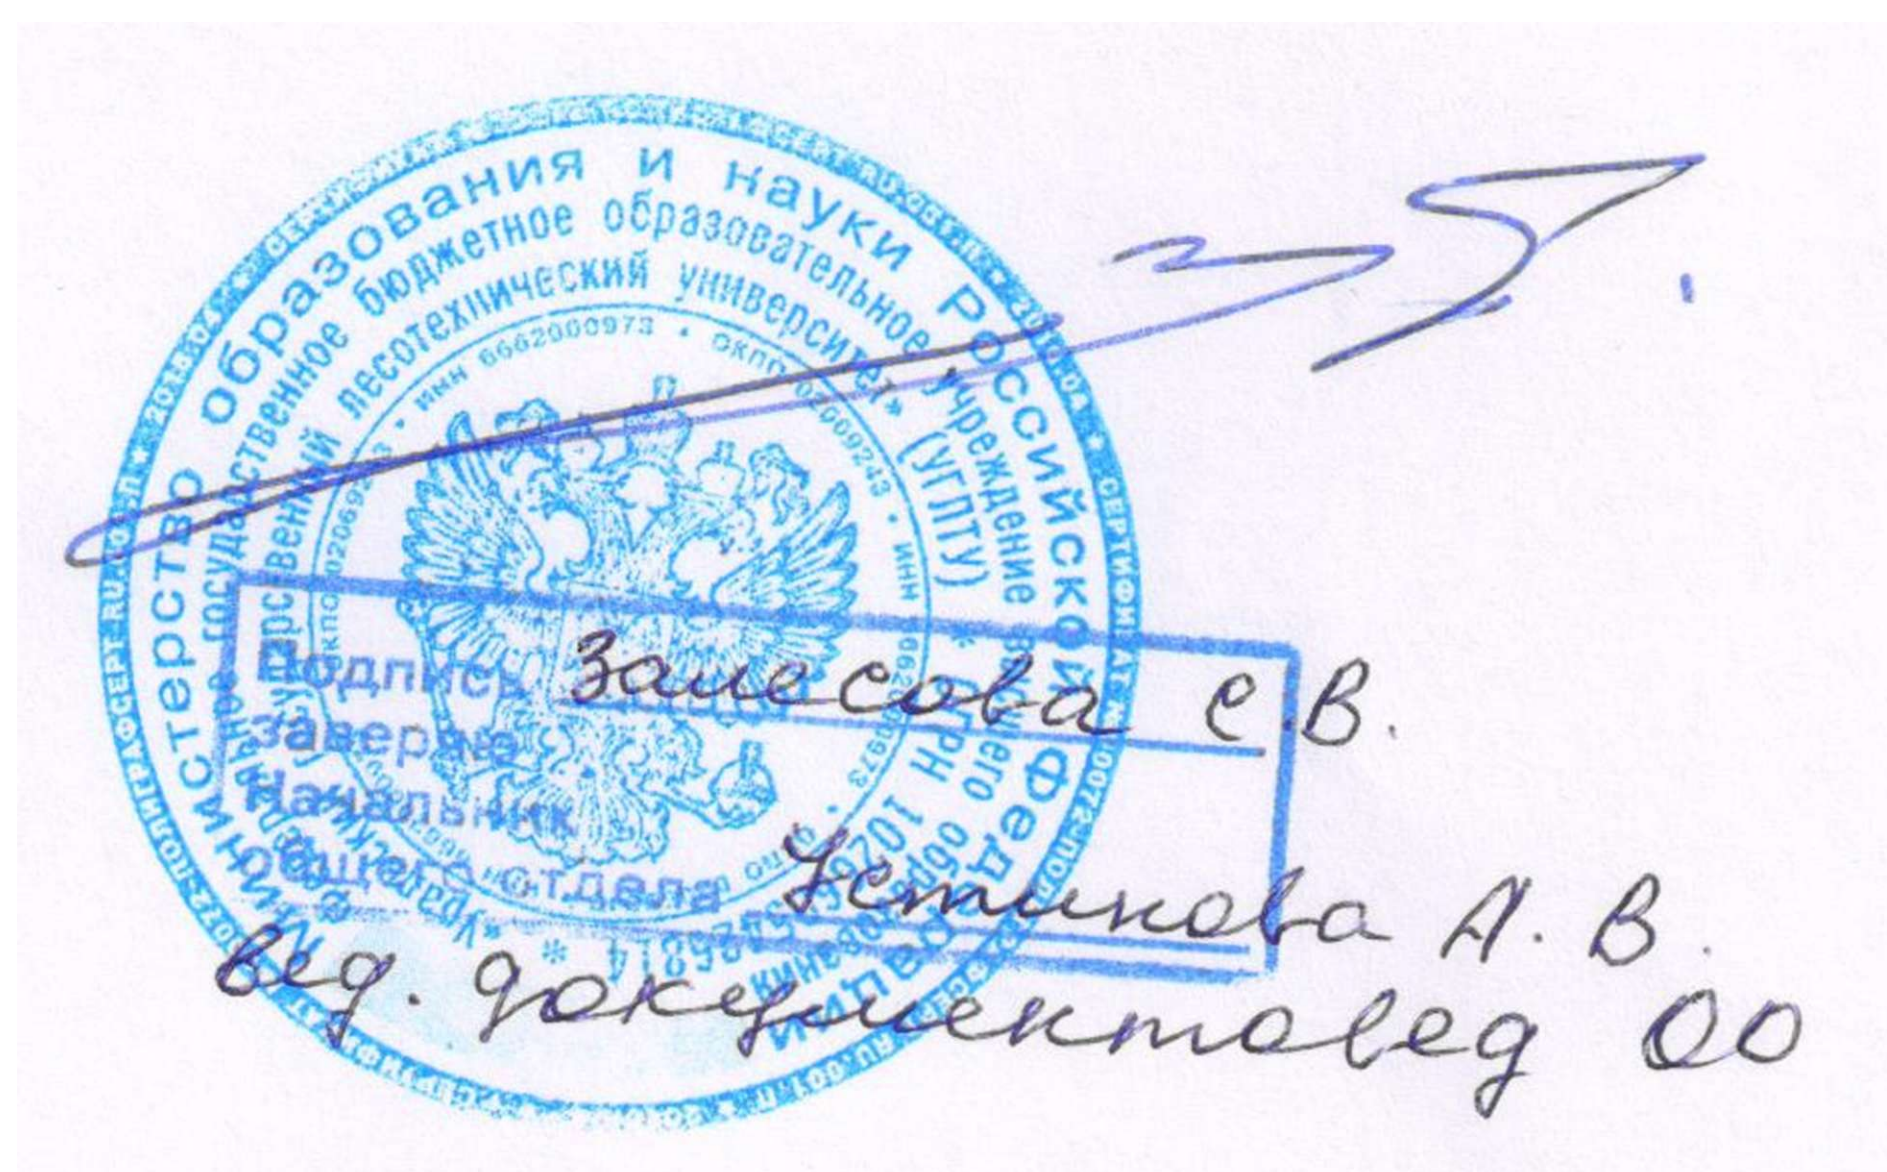 Министерство образования и науки Российской Федерации
государственное бюджетное образовательное учреждение высшего образования
лесотехнический университет» (УГЛТУ) * ОГРН
ИНН 6662000973 • ОКПО
Подпись Залесова С.В.
Заверяю
Начальник
общего отдела Устинова А. В.
вед. документовед ОО